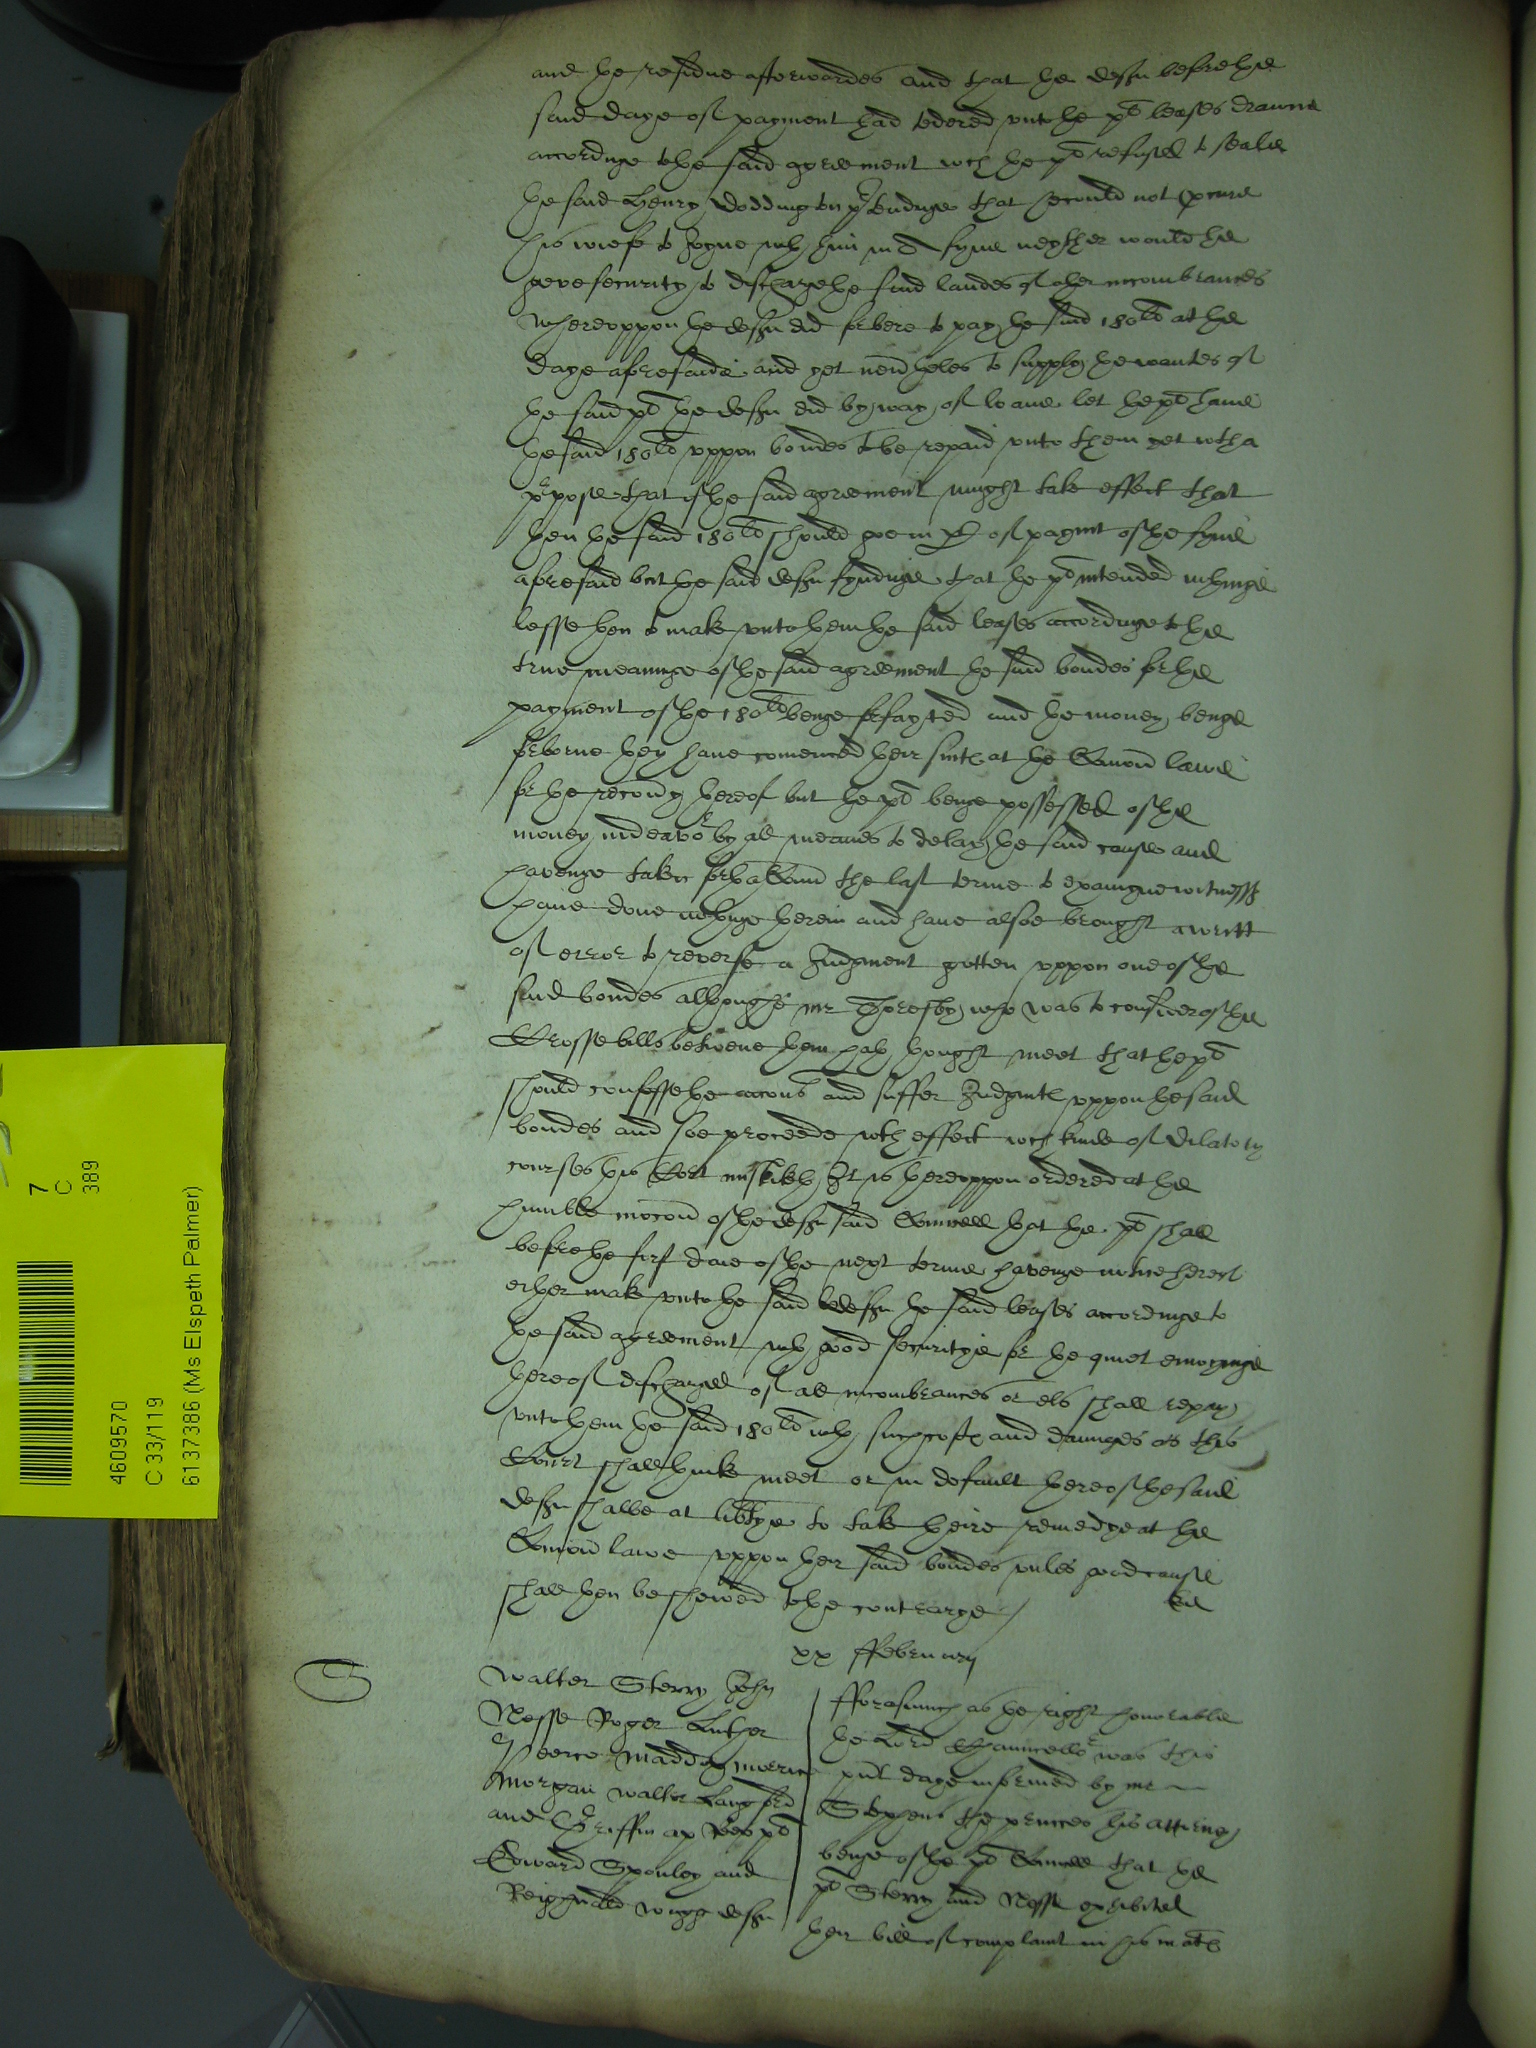 and the residue afterwardes and that the deftes before the
said daye of payment had tedered unto the plt leases drawne
accordinge to the said agreement wch the plt refused to seale
the said Henry Doddington ptendinge that he could not pcure
his wiefe to Joyne wth him in a fyne neyther would he
geve security to discharge the said landes of other incombrances
Whereoppon the deftes did forbere to pay the said 180li at the
daye aforesaide and yet neutheles to supply the wantes of
the said plt the deftes did by way of loane let the plt have
the said 180li uppon bondes to be repaid unto them yet with a
purpose that if the said agreement might take effect that
then the said 180li should goe in pt of paymt of the fyne
aforesaid but the said deftes fyndinge that the plt intended nothinge
lesse then to make unto them the said leases accordinge to the
true meaninge of the said agreement the said bondes for the
payment of the 180li beinge forfayted and the money beinge
forborne they have comenced their suite at the Comon lawe
for the recovery thereof but the plt beinge possessed of the
money indeavor by all meanes to delay the said cause and
havinge taken forth a Comd the last terme to examyne witnesses
have done nothinge therein and have alsoe brought a writt
of error to reverse a Judgment gotten uppon one of the
said bondes althoughe mr Thoresby who was to consider of the
Crosse bills betweene them hath thought meet that the plt
should confesse the accons and suffer Judgmte uppon the said
bondes and soe proceede wth effect wch kinde of dilatory
courses this Cort misliketh It is thereoppon ordered at the
humble mocon of the deftes said Councell that the plt shall
before the first daie of the next terme havinge notice hereof
either make unto the said deftes the said leases accordinge to
the said agreement wth good securitye for the quiet enioyinge
thereof discharged of all incombrances or els shall repay
unto them the said 180li wth such costes and damages as this
Court shall thinke meet or in default thereof the said
deftes shalbe at libtye to take theire remedye at the
Comon lawe uppon their said bondes unles good cause
shall then be shewed to the contrarye
xx ffebruary
Walter Sterry John
Nesse Roger Luther
Peerce Maddox Morrice
Morgan Walter Langford
and Griffin ap Rees plt
Edward Sponley and
Reighnald Wigge deftes
fforasmuch as the right honorable
the Lord Chauncellor was this
pnt daye informed by mr
Stephens the princes his attorny
beinge of the plt Councell that the
plt Sterry and Nesse exhibited
their bill of complaint in his mates
7
C
389
4609570
C 33/119
6137386 (Ms Elspeth Palmer)